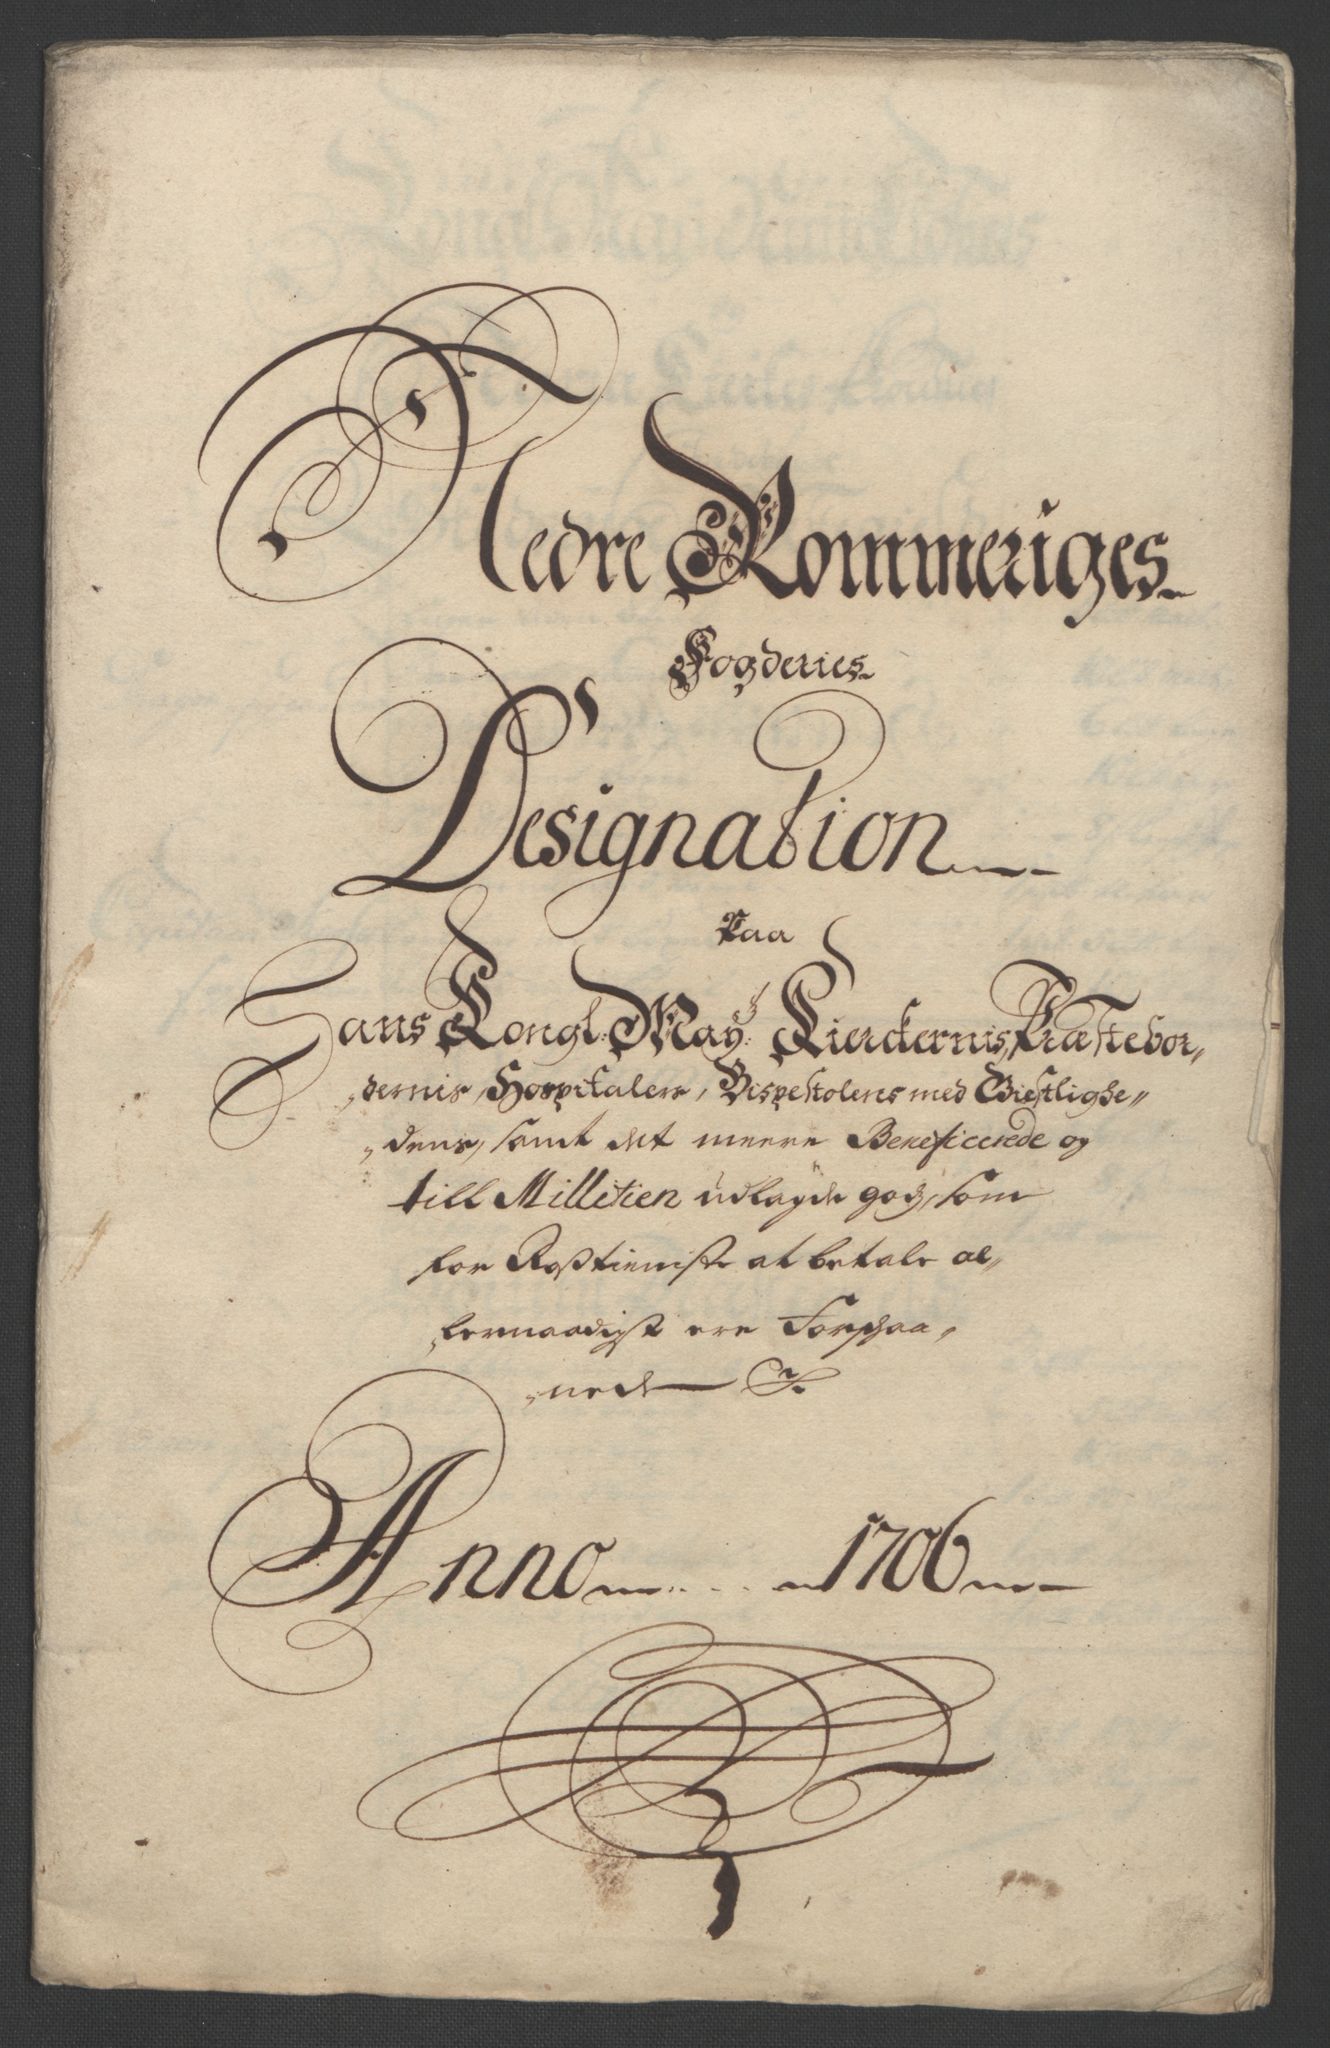 Nedre Rommeriges
Fogderies
Designation
Paa
Hans Kongl: May:ts Kierckernis, Præstebor„
„dernis, Hospitalers, Bispestolens med Giestlighe„
„dens, samt det meere Beneficerede og
till Milletien udlagde gods, som
for Rostienisten at betale al„
lernaadigst ere Forskaa„
„nede
Anno 1706